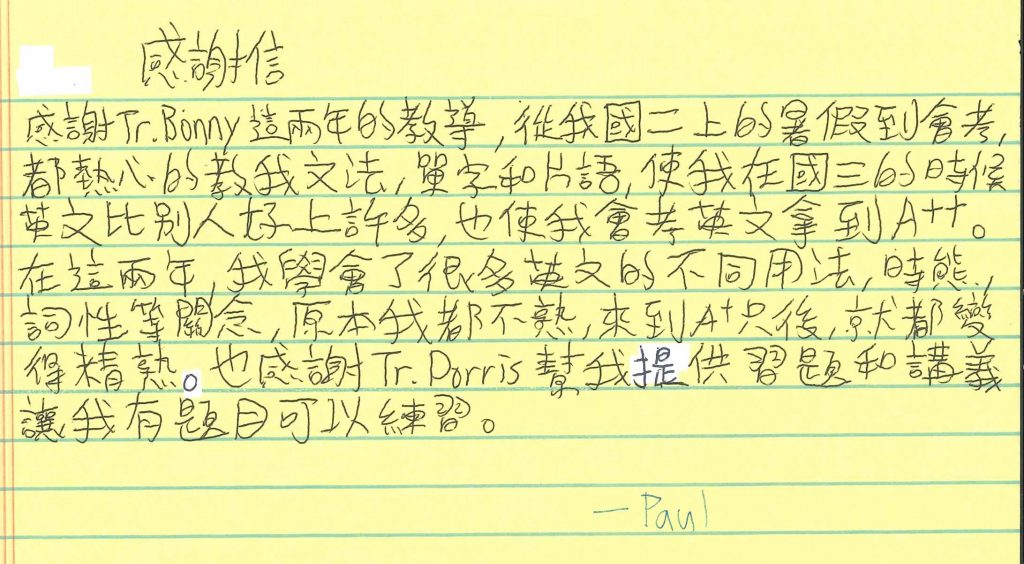 感謝信
感謝Tr.Bonny這兩年的教導,從我國二上的暑假到會考,
都熱心的教我文法,單字和片語,使我在國三的時候
英文比別人好上許多,也使我會考英文拿到A++。
在這兩年,我學會了很多英文的不同用法,時態,
詞性等關念,原本我都不熟,來到A+只後,就都變
得精熟。也感謝Tr.Dorris幫我提供習題和講義
讓我有題目可以練習。
-Paul